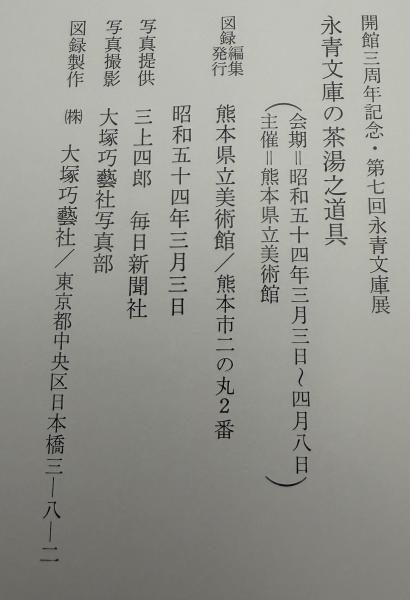 開館三周年記念・第七回永青文庫展
永青文庫の茶湯之道具
(会期=昭和五十四年三月三日~四月八日
主催=熊本県立美術館)
図録編集
発行
熊本県立美術館/熊本市二の丸2番
昭和五十四年三月三日
写真提供 三上四郎 毎日新聞社
写真撮影 大塚巧藝社写真部
図録製作 ㈱ 大塚巧藝社/東京都中央区日本橋三―八―二